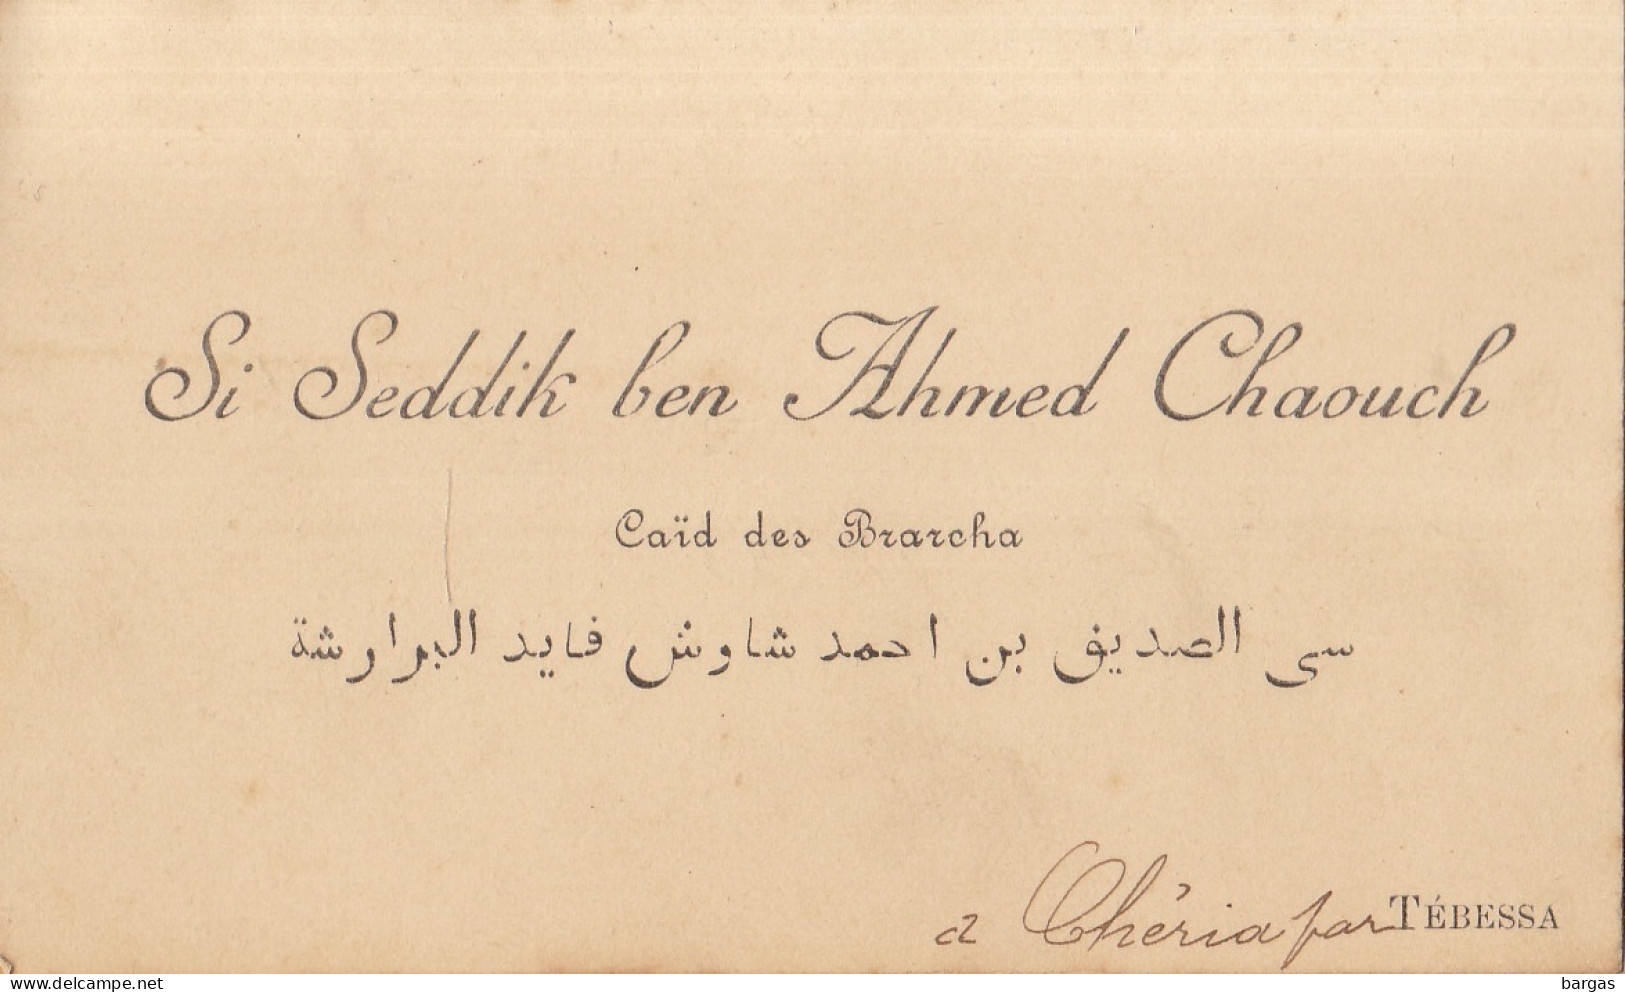 Si Seddik ben Ahmed Chaouch
Caïd des Brarcha
سى الصديق بن احمد شاوش فايد البرارشة
a Chéria par TÉBESSA
the-west.delcampe.net
bargas